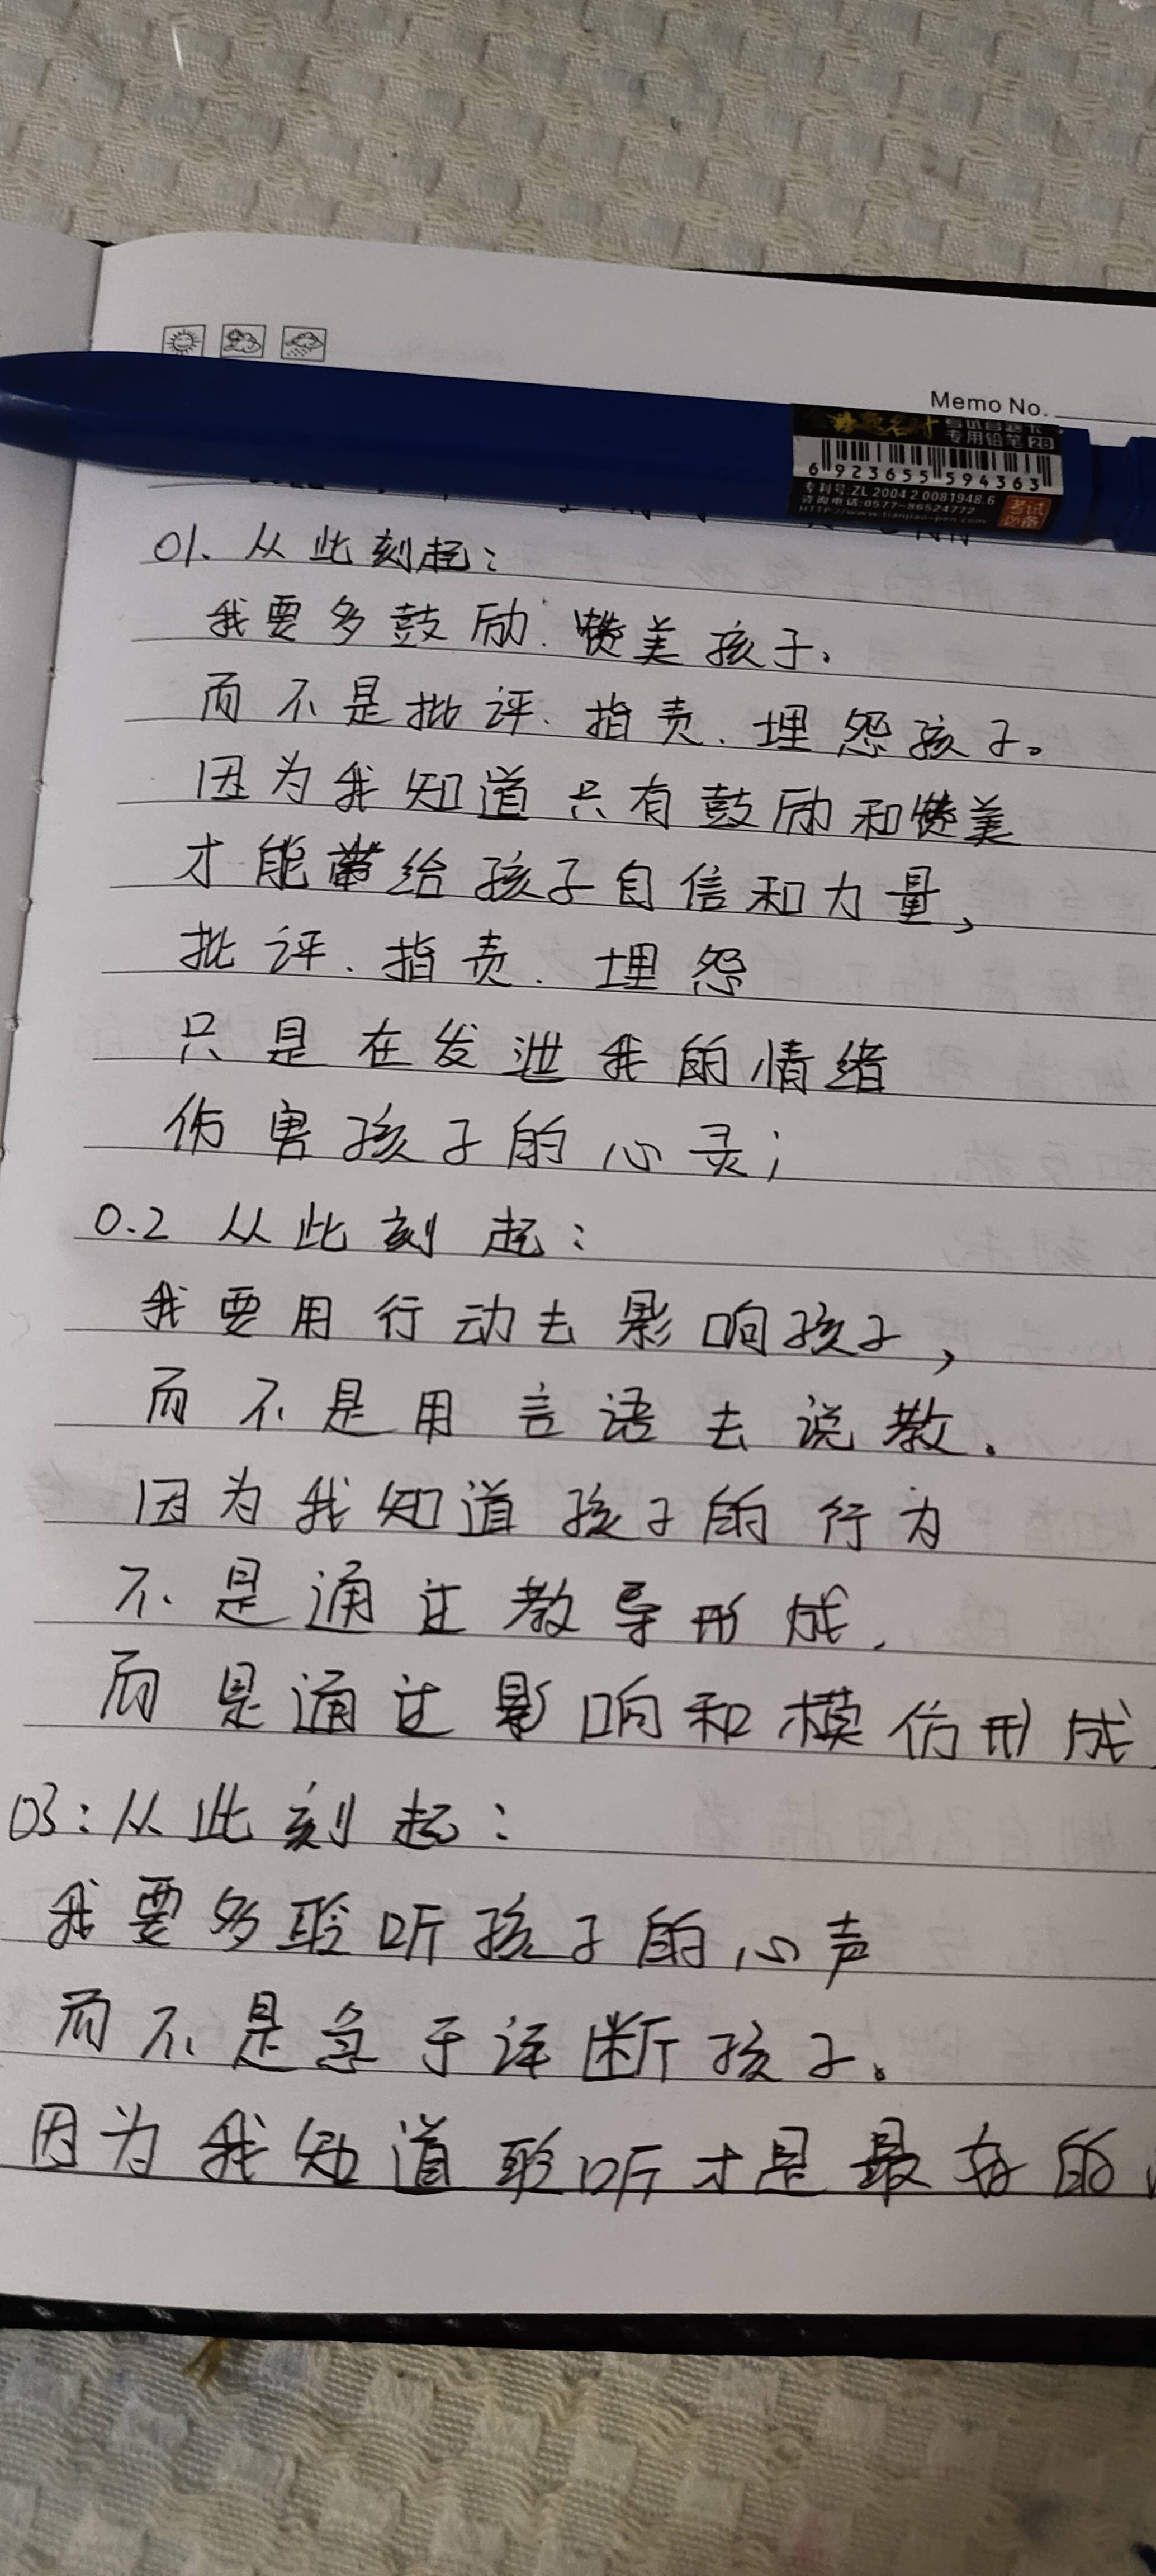 Memo No.
考试答题卡
专用铅笔 2B
6 923655 594363
专利号:ZL 2004 2 0081948.6
咨询电话:0577-86524772
HTTP://www.tianjiao-pen.com
考试
必备
01. 从此刻起:
我要多鼓励、赞美孩子,
而不是批评、指责、埋怨孩子。
因为我知道只有鼓励和赞美
才能带给孩子自信和力量,
批评、指责、埋怨
只是在发泄我的情绪
伤害孩子的心灵;
0.2 从此刻起:
我要用行动去影响孩子,
而不是用言语去说教.
因为我知道孩子的行为
不是通过教导形成.
而是通过影响和模仿形成.
03:从此刻起:
我要多聆听孩子的心声
而不是急于评断孩子。
因为我知道聆听才是最好的